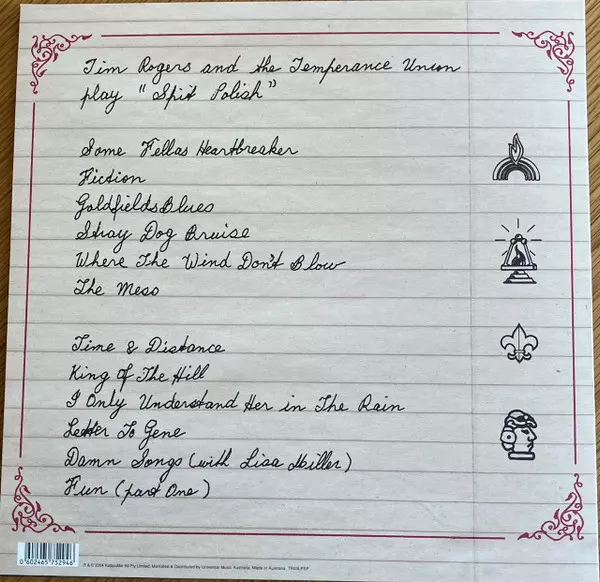 Tim Rogers and the Temperance Union
play "Spit Polish"
Some Fellas Heartbreaker
Fiction
Goldfields Blues
Stray Dog Bruise
Where The Wind Don't Blow
The Mess
Time & Distance
King Of The Hill
I Only Understand Her in The Rain
Letter To Gene
Damn Songs (with Lisa Miller)
Fun (part One)
0 602465 752946
Pty Limited. Marketed & Distributed by Universal Music, Australia. Made in Australia.